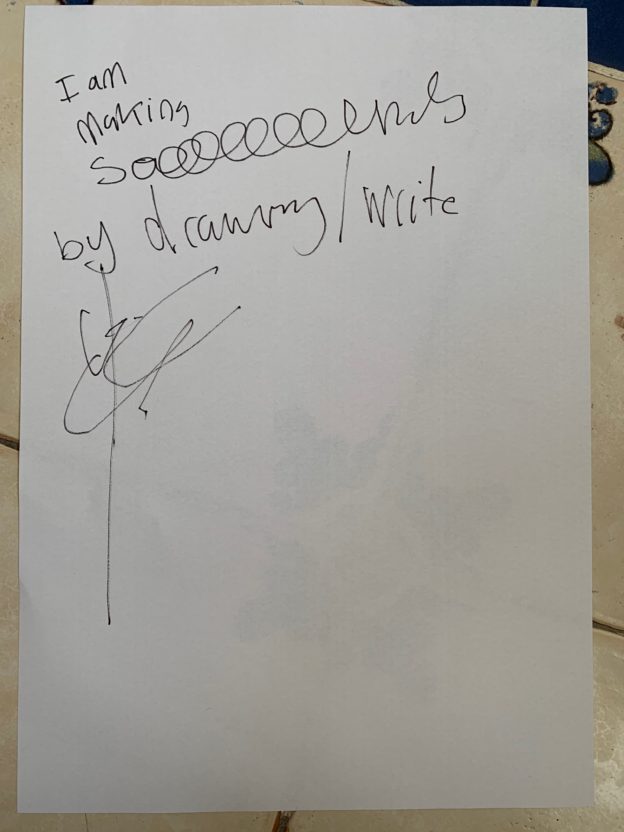 I am
making
soooooooounds
by drawing/write